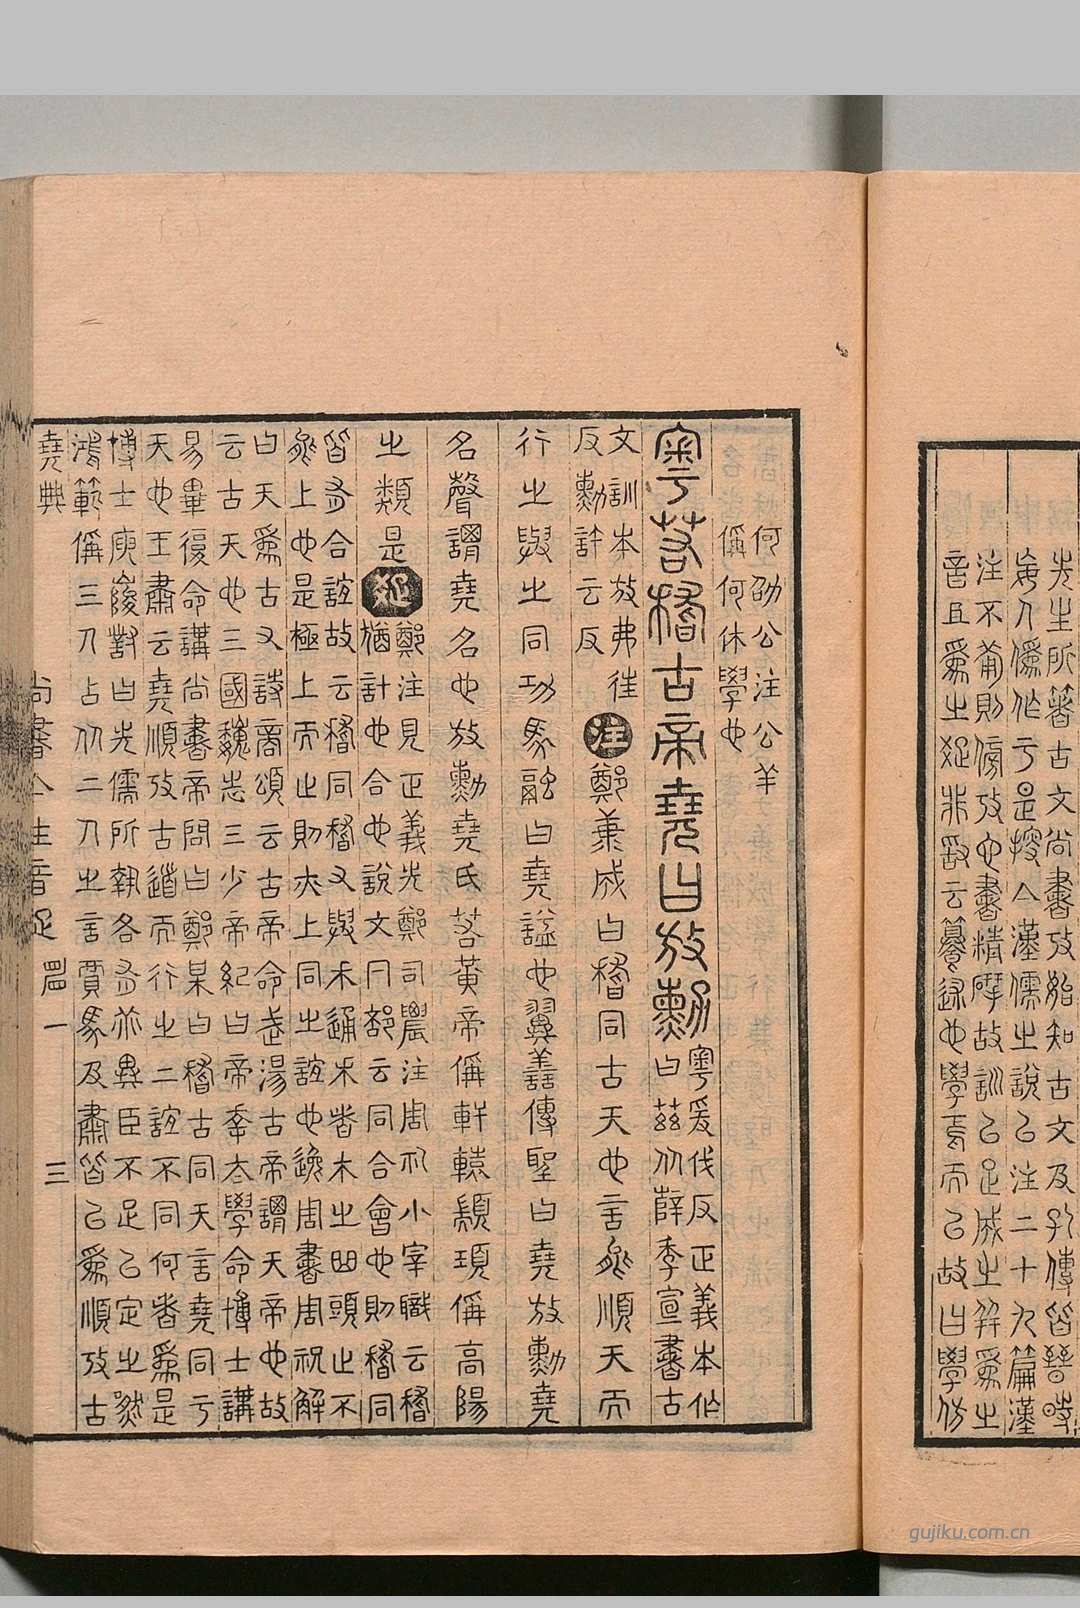 先生所箸古文尚書攷始知古文及孔傳皆晉時
妄人僞作于是搜亼漢儒之說㠯注二十九篇漢
注不葡則傍攷它書精摩故訓㠯足成之幷爲之
音且爲之疏非敢云纂述也學焉而㠯故曰學仿
何邵公注公羊
偁何休學也
粵若稽古帝堯曰放勳
粵爰伐反正義本作
曰茲从薛季宣書古
文訓本放弗往
反勳許云反
注鄭康成曰稽同古天也言能順天而
行之與之同功馬融曰堯謚也翼善傳聖曰堯放勳堯
名聲謂堯名也放勳堯氏若黃帝偁軒轅顓頊偁高陽
之類是疏
鄭注見正義先鄭司農注周礼小宰職云稽
猶計也合也說文冂部云同合會也則稽同
皆有合誼故云稽同稽又與禾通禾者木之曲頭止不
能上也是極上而止則亦上同之誼也逸周書周祝解
曰天爲古又詩商頌云古帝命武湯古帝謂天帝也故
云古天也三國魏志三少帝紀曰帝幸太學命博士講
易畢復命講尚書帝問曰鄭某曰稽古同天言堯同于
天也王肅云堯順攷古道而行之二誼不同何者爲是
博士庾峻對曰先儒所執各有乖異臣不足㠯定之然
鴻範偁三人占从二人之言賈馬及肅皆㠯爲順攷古
堯典
尚書亼注音疏
一
三
gujiku.com.cn